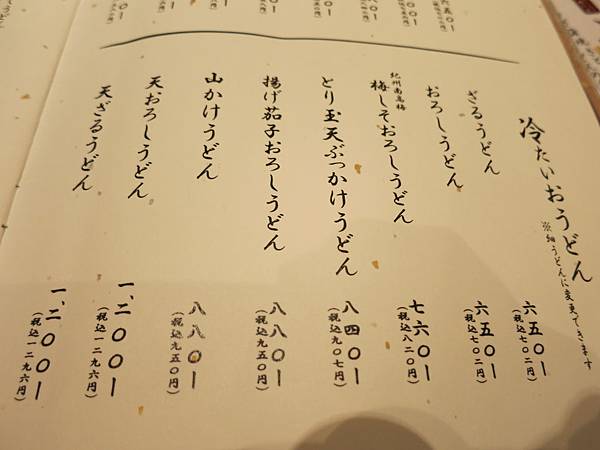 冷たいおうどん
※細うどんに変更できます
ざるうどん
六五〇ー
(税込七〇二円)
おろしうどん
六五〇ー
(税込七〇二円)
紀州南高梅
梅しそおろしうどん
七六〇ー
(税込八二〇円)
とり玉天ぶっかけうどん
八四〇ー
(税込九〇七円)
揚げ茄子おろしうどん
八八〇ー
(税込九五〇円)
山かけうどん
八八〇ー
(税込九五〇円)
天おろしうどん
一、二〇〇ー
(税込一二九六円)
天ざるうどん
一、二〇〇ー
(税込一二九六円)